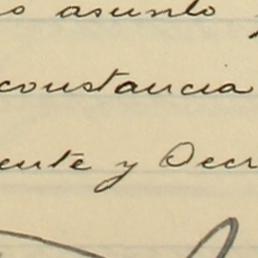 asunto
constancia
ente y Secr